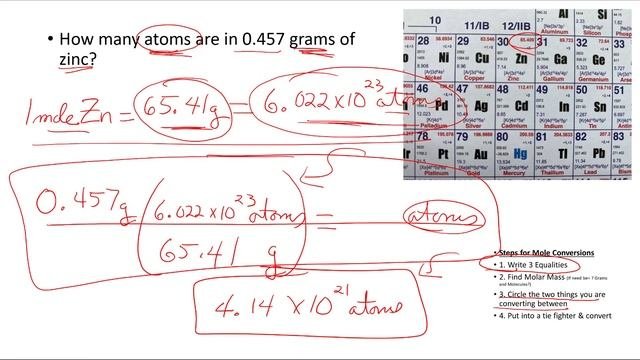 • How many atoms are in 0.457 grams of
zinc?
1 mole Zn = 65.41g = 6.022 x 10^23 atoms
0.457g ( 6.022 x 10^23 atoms / 65.41 g ) = atoms
4.14 x 10^21 atoms
10 11/IB 12/IIB
Al Si
Aluminum Silicon
28 29 30 31 32 33
Ni Cu Zn Ga Ge
Nickel Copper Zinc Gallium Germanium
46 47 48 49 50 51
Pd Ag Cd In Sn
Palladium Silver Cadmium Indium Tin
78 79 80 81 82 83
Pt Au Hg Tl Pb
Platinum Gold Mercury Thallium Lead
• Steps for Mole Conversions
• 1. Write 3 Equalities
• 2. Find Molar Mass
• 3. Circle the two things you are
converting between
• 4. Put into a tie fighter & convert